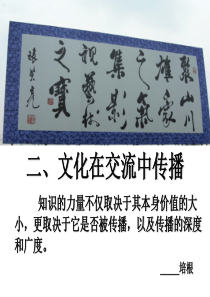 聚山川
雄豪
之氣
集影
視藝術
之寶
張賢亮
二、文化在交流中传播
知识的力量不仅取决于其本身价值的大
小，更取决于它是否被传播，以及传播的深度
和广度。
____培根